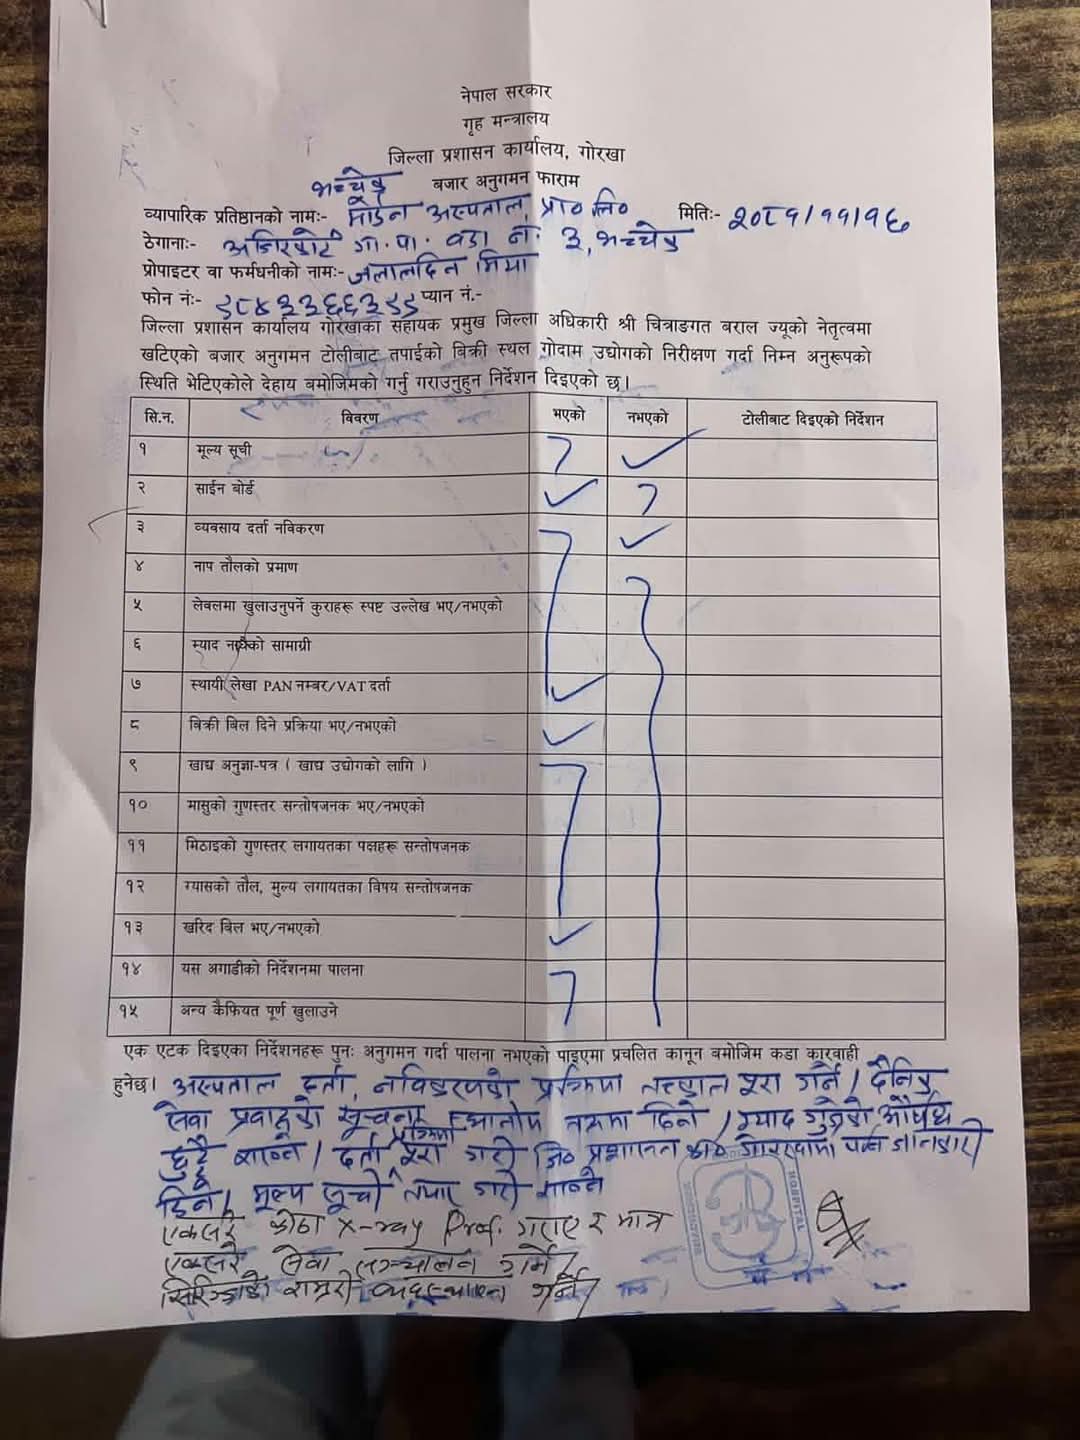 नेपाल सरकार
गृह मन्त्रालय
जिल्ला प्रशासन कार्यालय, गोरखा
बजार अनुगमन फाराम
भच्चेक
व्यापारिक प्रतिष्ठानको नामः- मोडेन अस्पताल, प्रा० लि० मितिः- २०८१/११/१६
ठेगानाः- अजिरकोट गा.पा. वडा नं. ३, भच्चेक
प्रोपाइटर वा फर्मधनीको नामः- जलालदिन मिया
फोन नंः- ९८४३३६६३९९ प्यान नं.-
जिल्ला प्रशासन कार्यालय गोरखाका सहायक प्रमुख जिल्ला अधिकारी श्री चित्राङगत बराल ज्यूको नेतृत्वमा
खटिएको बजार अनुगमन टोलीबाट तपाईको बिक्री स्थल गोदाम उद्योगको निरीक्षण गर्दा निम्न अनुरूपको
स्थिति भेटिएकोले देहाय बमोजिमको गर्नु गराउनुहुन निर्देशन दिइएको छ।
सि.न. विवरण भएको नभएको टोलीबाट दिइएको निर्देशन
१ मूल्य सूची
२ साईन बोर्ड
३ व्यवसाय दर्ता नविकरण
४ नाप तौलको प्रमाण
५ लेवलमा खुलाउनुपर्ने कुराहरू स्पष्ट उल्लेख भए/नभएको
६ म्याद सामाग्री
७ स्थायी लेखा PAN नम्बर/VAT दर्ता
८ बिक्री बिल दिने प्रक्रिया भए/नभएको
९ खाद्य अनुज्ञा-पत्र ( खाद्य उद्योगको लागि )
१० मासुको गुणस्तर सन्तोषजनक भए/नभएको
११ मिठाइको गुणस्तर लगायतका पक्षहरू सन्तोषजनक
१२ ग्यासको तौल, मुल्य लगायतका विषय सन्तोषजनक
१३ खरिद बिल भए/नभएको
१४ यस अगाडीको निर्देशनमा पालना
१५ अन्य कैफियत पूर्ण खुलाउने
एक एटक दिइएका निर्देशनहरू पुनः अनुगमन गर्दा पालना नभएको पाइएमा प्रचलित कानून बमोजिम कडा कारवाही
हुनेछ। अस्पताल दर्ता, नविकरणको प्रक्रिया तत्काल पूरा गर्ने। दैनिक
सेवा प्रवाहको सूचना स्थानीय तहमा दिने। म्याद गुज्रेको औषधि
छुट्टै राख्ने। दर्ता प्रक्रिया पूरा गरी जि० प्रशासन का० गोरखामा जानकारी
दिने, मूल्य सूची तयार गरी राख्ने
एक्सरे कोठा X-ray Prof. गराएर मात्र
एक्सरे सेवा सञ्चालन गर्ने।
सिरिन्जको राम्ररी व्यवस्थापन गर्ने।
HOSPITAL